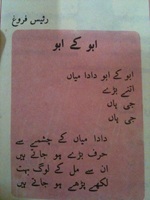 رئیس فروغ
ابو کے ابو
ابو کے ابو دادا میاں
اتنے بڑے
جی ہاں
جی ہاں
دادا میاں کے چشمے سے
حرف بڑے ہو جاتے ہیں
ان سے مل کے لوگ بہت
لکھے پڑھے ہو جاتے ہیں